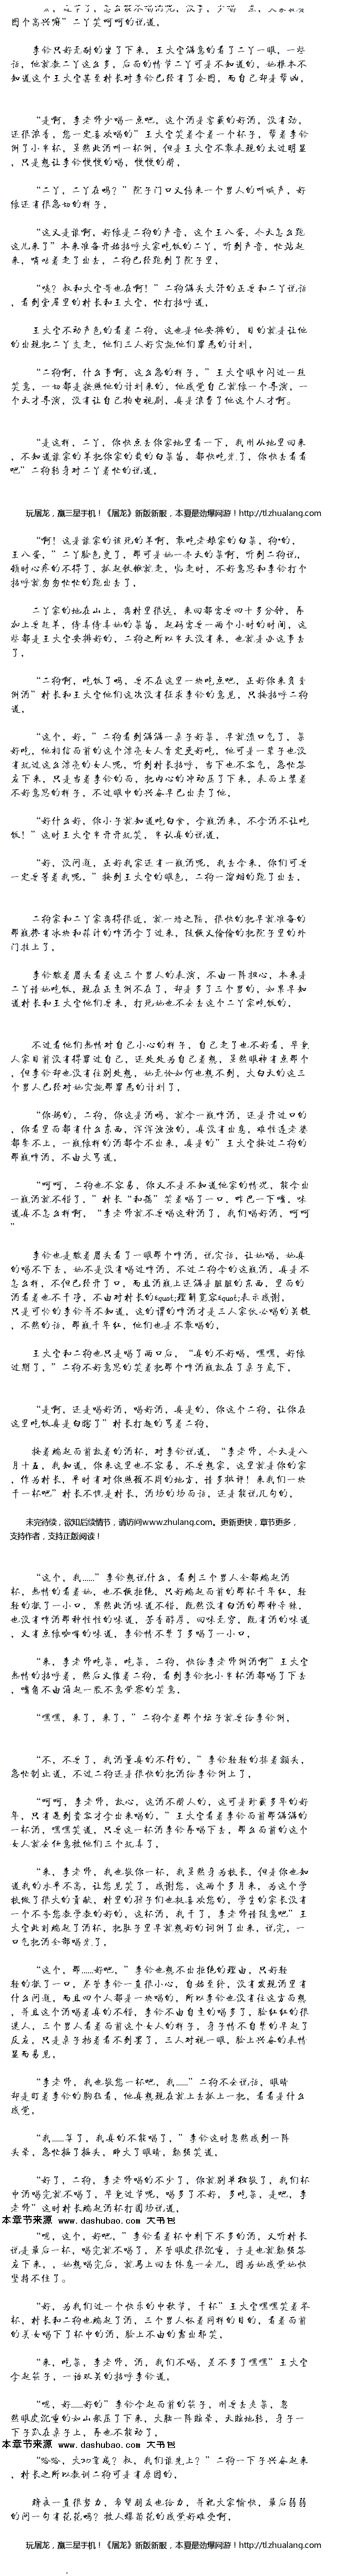 图个高兴嘛”二丫笑呵呵的说道。
李铃只好无耐的坐了下来，王大宝满意的看了二丫一眼，一些
话，他就教二丫这么多，后面的情节二丫可是不知道的，她根本不
知道这个王大宝甚至村长对李铃已经有了企图，而自己却是帮凶。
“是啊，李老师少喝一点吧，这个酒是窖藏的好酒，没有劲，
还很浓香，您一定喜欢喝的”王大宝笑着拿着一个杯子，帮着李铃
倒了小半杯，虽然此酒叫一杯倒，但是王大宝不敢表现的太过明显
，只是想让李铃慢慢的喝，慢慢的醉。
“二丫，二丫在吗？”院子门口又传来一个男人的叫喊声，好
像还有很急切的样子。
“这又是谁啊，好像是二狗的声音，这个王八蛋，今天怎么跑
这儿来了”本来准备开始招呼大家吃饭的二丫，听到声音，忙站起
来，嘀咕着走了出去，二狗已经跑到了院子里。
“咦？叔和大宝哥也在啊！”二狗满头大汗的正要和二丫说话
，看到堂屋里的村长和王大宝，忙打招呼道。
王大宝不动声色的看着二狗，这也是他安排的，目的就是让他
的出现把二丫支走，他们三人好实施他们罪恶的计划。
“二狗啊，什么事啊，这么急的样子，”王大宝眼中闪过一丝
笑意，一切都是按照他的计划来的，他感觉自己就像一个导演，一
个天才导演，没有让自己拍电视剧，真是浪费了他这个人才啊。
“是这样，二丫，你快点去你家地里看一下，我刚从地里回来
，不知道谁家的羊把你家的栽的白菜苗，都快吃光了，你快去看看
吧”二狗转身对二丫着忙的说道。
玩屠龙，赢三星手机！《屠龙》新版新服，本夏最劲爆网游！http://tl.zhualang.com
“啊！这是谁家的该死的羊啊，敢吃老娘家的白菜，狗·的，
王八蛋，”二丫脸色变了，那可是她一冬天的菜啊，听到二狗说，
顿时心疼的不得了，抓起铁锹就走，临走时，不好意思和李铃打个
招呼就匆匆忙忙的跑出去了。
二丫家的地在山上，离村里很远，来回都需要四十多分钟，再
加上要赶羊，侍弄侍弄她的菜苗，起码需要一两个小时的时间，这
些都是王大宝安排好的，二狗之所以半天没有来，也就是办这事去
了，
“二狗啊，吃饭了吗，要不在这里一块吃点吧，正好你来负责
倒酒”村长和王大宝他们这次没有征求李铃的意见，只接招呼二狗
道。
“这个，好，”二狗看到满满一桌子好菜，早就流口气了，菜
好吃，他相信面前的这个漂亮女人肯定更好吃，他可是一辈子也没
有玩过这么漂亮的女人呢，听到村长招呼，当下也不客气，急忙答
应下来，只是当着李铃的面，把内心的冲动压了下来，表面上装着
不好意思的样子，不过眼中的兴奋早已出卖了他。
“好什么好，你小子就知道吃白食，拿瓶酒来，不拿酒不让吃
饭！”这时王大宝半开开玩笑，半认真的说道。
“好，没问题，正好我家还有一瓶酒呢，我去拿来，你们可要
一定要等着我呢，”接到王大宝的眼色，二狗一溜烟的跑了出去。
二狗家和二丫家离得很近，就一墙之隔，很快的把早就准备的
那瓶掺有冰块和蒜汁的啤酒拿了过来，随便又偷偷的把院子里的外
门拴上了，
李铃皱着眉头看着这三个男人的表演，不由一阵担心，本来是
二丫请她吃饭，现在正主倒不在了，却是多了三个男的，如果早知
道村长和王大宝他们要来，打死她也不会去这个二丫家吃饭的。
不过看他们热情对自己小心的样子，自己走了也不好看，毕竟
人家目前没有得罪过自己，还处处为自己着想，虽然眼神有点那个
，但李铃却也没有往别处想，她无论如何也想不到，大白天的这三
个男人已经对她实施那罪恶的计划了。
“你妈的，二狗，你这是酒吗，就拿一瓶啤酒，还是开过口的
，你看里面都有什么东西，浑浑浊浊的，真没有出息，难怪连老婆
都娶不上，一瓶像样的酒都拿不出来，真是的”王大宝接过二狗的
那瓶啤酒，不由大骂道。
“呵呵，二狗也不容易，你又不是不知道他家的情况，能拿出
一瓶酒就不错了，”村长“和蔼”笑着喝了一口，咋巴一下嘴，味
道真不怎么样啊，“李老师就不要喝这种酒了，我们喝好酒，呵呵
”
李铃也是皱着眉头看了一眼那个啤酒，说实话，让她喝，她真
的喝不下去，她不是没有喝过啤酒，不过二狗拿的这瓶酒，真是不
怎么样，不但已经开了口，而且酒瓶上还满是脏脏的东西，里面的
酒看着也不干净，不由对村长的&quot;理解宽容&quot;表示感谢，
只是可怜的李铃并不知道，这的谓的啤酒才是三人家伙必喝的关键
，不然的话，那瓶千年红，他们也是不敢喝的。
王大宝和二狗也只是喝了两口后，“真的不好喝，嘿嘿，好像
过期了，”二狗不好意思的笑着把那个啤酒瓶放在了桌子底下。
“是啊，还是喝好酒，喝好酒，真是的，你这个二狗，让你在
这里吃饭真是白瞎了”村长打趣的骂着二狗。
接着端起面前放着的酒杯，对李铃说道，“李老师，今天是八
月十五，我知道，你来这里也不容易，不要想家，这里就是你的家
，作为村长，平时有对你照顾不周的地方，请多批评！来我们一块
干一杯吧”村长不愧是村长，酒场的场面话，还是能说几句的。
未完待续，欲知后续情节，请访问www.zhulang.com。更新更快，章节更多，
支持作者，支持正版阅读！
“这个，我……”李铃想说什么，看到三个男人全都端起酒
杯，热情的看着她，也不便拒绝，只好端起面前的那杯千年红，轻
轻的抿了一小口，果然此酒味道不错，既然没有白酒的那种辛辣，
也没有啤酒那种怪怪的味道，芳香醇厚，回味无穷，既有酒的味道
，又有点像咖啡的味道，李铃情不禁了多喝了一小口。
“来，李老师吃菜，吃菜，二狗，快给李老师倒酒啊”王大宝
热情的招呼着，然后又催着二狗，看到李铃把小半杯酒都喝了下去
，嘴角不由涌起一股不易觉察的笑意。
“嘿嘿，来了，来了，”二狗拿着那个坛子就要给李铃倒，
“不，不要了，我酒量真的不行的，”李铃轻轻的揉着额头，
急忙制止道，不过二狗还是很快的把酒给李铃倒上了。
“呵呵，李老师，放心，这酒不醉人的，这可是珍藏多年的好
年，只有遇到贵客才拿出来喝的，”王大宝看着李铃面前那满满的
一杯酒，嘿嘿笑道，只要这一杯酒李铃再喝下去，那么面前的这个
女人就会任意被他们三个玩弄了。
“来，李老师，我也敬你一杯，我虽然身为校长，但是你也知
道我的水平不高，让您见笑了，感谢您，这两个多月来，为这个学
校做了很大的贡献，村里的孩子们也挺喜欢您的，学生的家长没有
一个不夸您教学教的好的，这杯酒，我干了，李老师请随意吧”王
大宝此刻端起了酒杯，把肚子里早就想好的词倒了出来，说完，一
口气把酒全部喝光了。
“这个，那……好吧，”李铃也想不出拒绝的理由，只好轻
轻的抿了一口，尽管李铃一直很小心，自始至终，没有发现酒里有
什么问题，而且四个人都是一块喝的，所以李铃也没有往这方面想
，并且这个酒喝着真的不错，李铃不由自主的喝多了，脸红红的很
迷人，三个男人看着面前这个女人的样子，身子情不自禁的早起了
反应，只是桌子挡着看不到罢了，三人对视一眼，脸上兴奋的表情
显而易见。
“李老师，我也敬您一杯吧，我……”二狗不会说话，眼睛
却是盯着李铃的胸部看，他真想现在就上去抓上一把，看看是什么
感觉。
“我……等了，我真的不能喝了，”李铃这时忽然感到一阵
头晕，急忙摇了摇头，睁大了眼睛，勉强笑道。
“好了，二狗，李老师喝的不少了，你就别单独敬了，我们杯
中酒喝完就不喝了，毕竟过节呢，喝多了不好，多吃菜，是吧，李
老师”这时村长端起酒杯打圆场说道。
本章节来源 www.dashubao.com 大书包
“嗯，这个，好吧，”李铃看着杯中剩下不多的酒，又听村长
说是最后一杯，喝完就不喝了，尽管眼皮很沉重，于是也就勉强答
应下来，，她想喝完后，就马上回去休息一会儿，因为她感觉她快
坚持不住了。
“好，为我们过一个快乐的中秋节，干杯”王大宝嘿嘿笑着举
杯，村长和二狗也端起了酒，三个男人怀着同样的目的，看着面前
的美女喝下了杯中的酒，脸上不由的露出邪笑。
“来，吃菜，李老师，酒，我们不喝，差不多了嘿嘿”王大宝
拿起筷子，一语双关的招呼李铃道。
“嗯，好……好的”李铃拿起面前的筷子，刚要去夹菜，忽
然眼皮沉重的如山般压了下来，大脑一阵眩晕，天眩地转，身子一
下子趴在桌子上，再也不能动了。
本章节来源 www.dashubao.com 大书包
“哈哈，大功靠成？叔，我们谁先上？”二狗一下子兴奋起来
，村长之所以教训二狗可是有原因的，
残夜一直很努力，希望朋友也给力，并祝大家愉快，最后弱弱
的问一句有花花吗？被人爆菊花的感觉好难受啊。
玩屠龙，赢三星手机！《屠龙》新版新服，本夏最劲爆网游！http://tl.zhualang.com